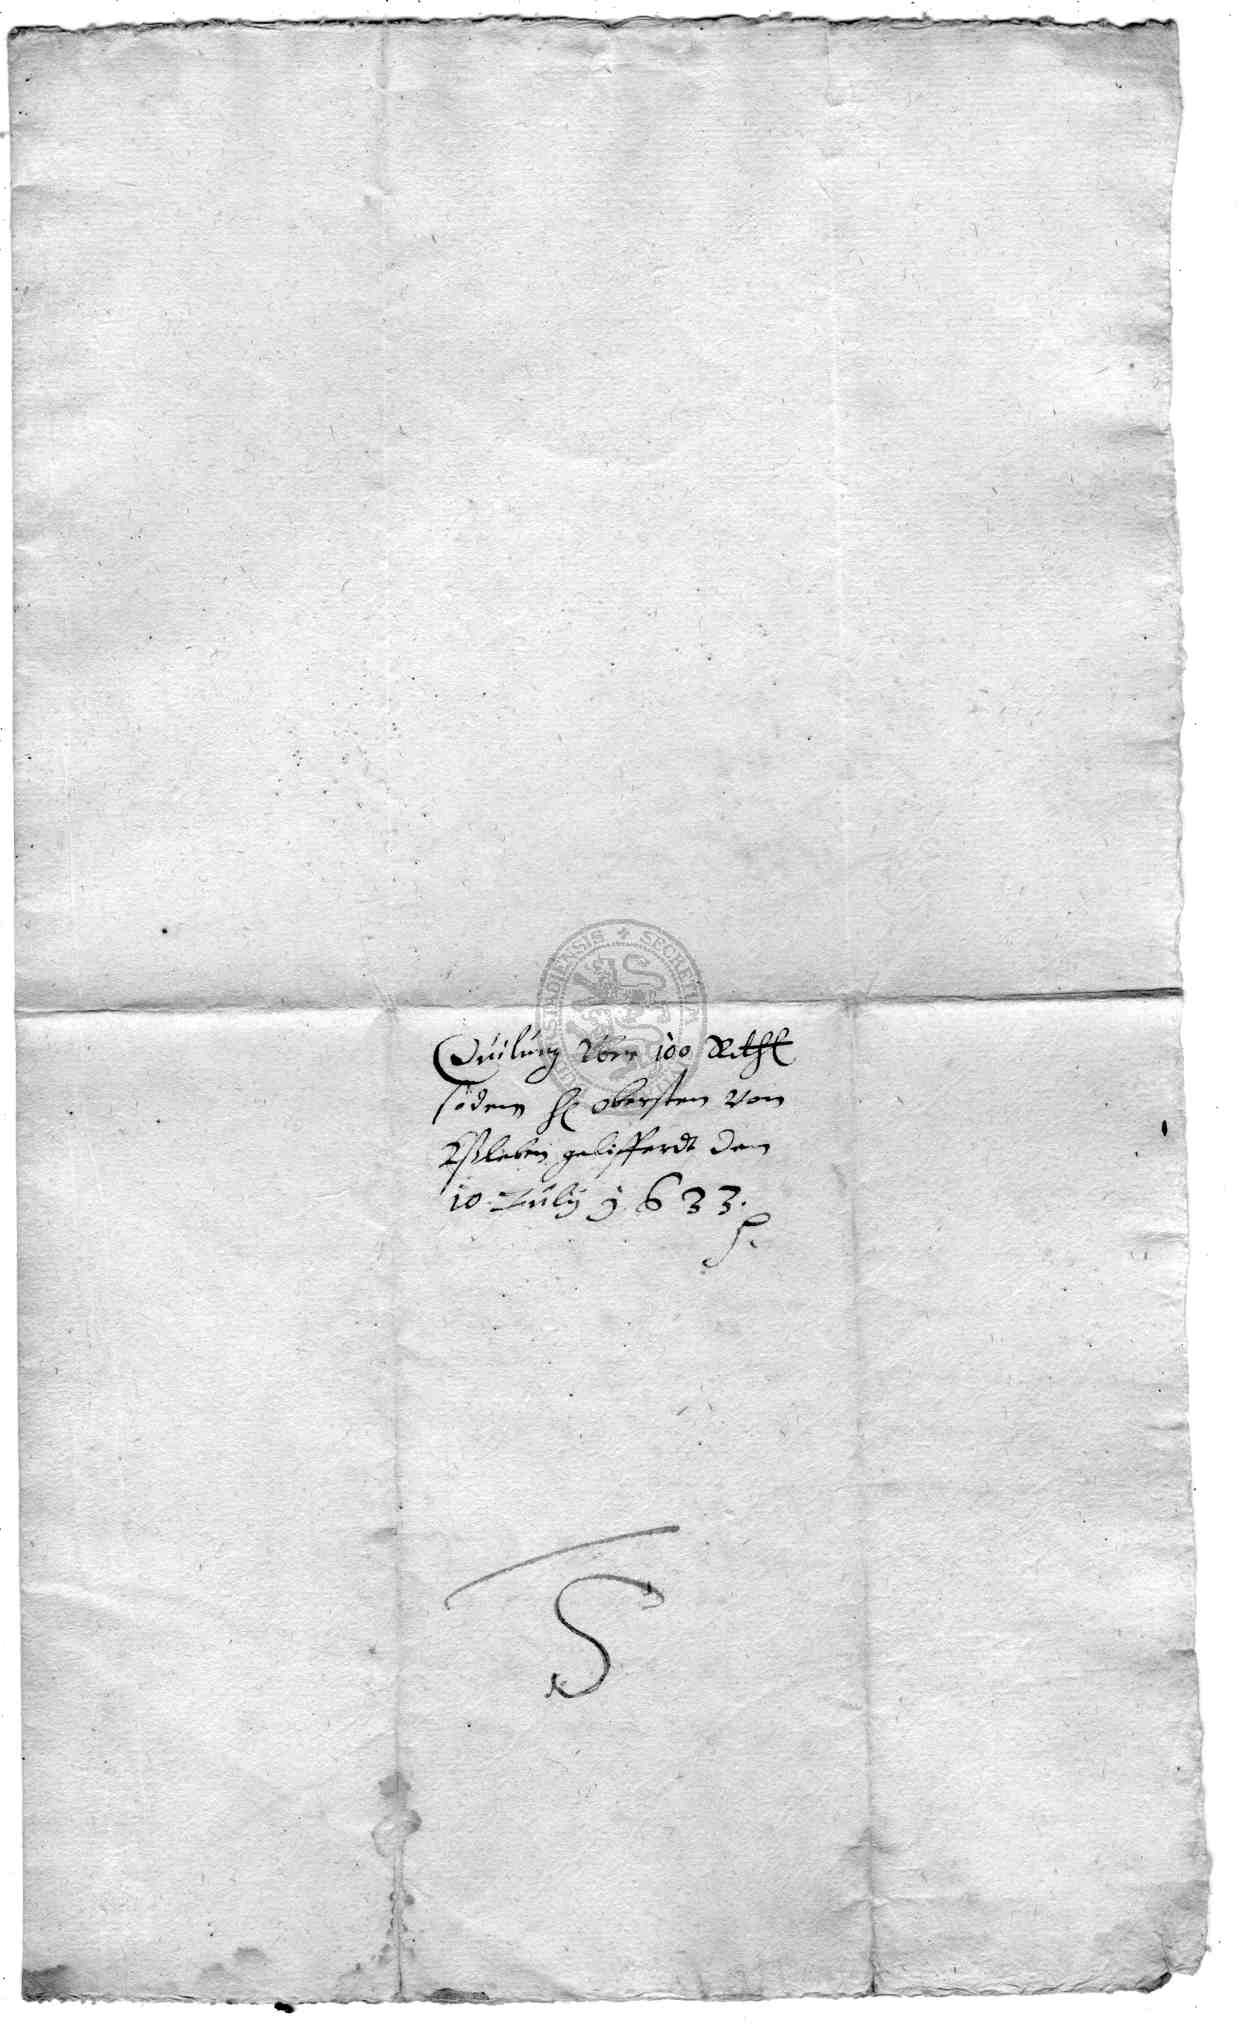 Quitung Vber 100 Rthl
so dem H. obersten Von
Vßleben geliefferdt den
10. July 1633.
S.